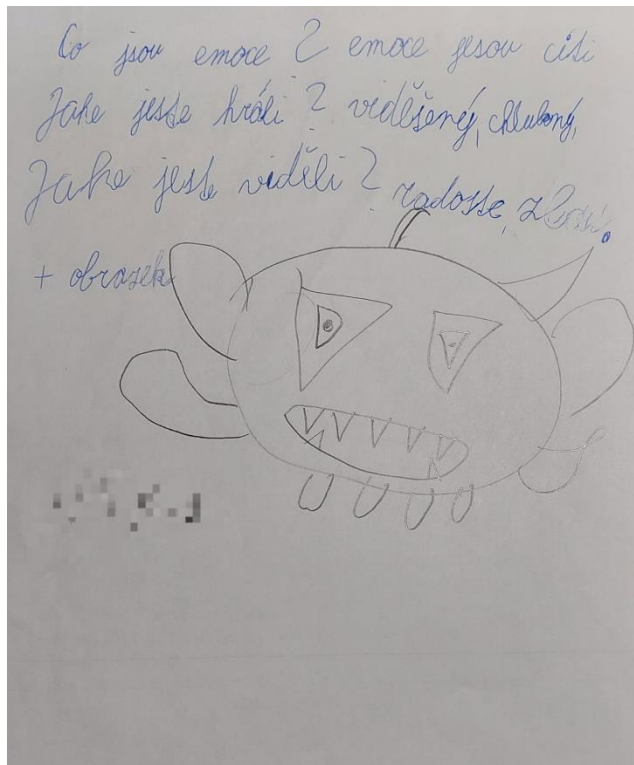 Co jsou emoce? emoce jesou citi
Jake jeste hráli? viděšený, chlubený,
Jake jeste viděli? radosse, zlost.
+ obrazek